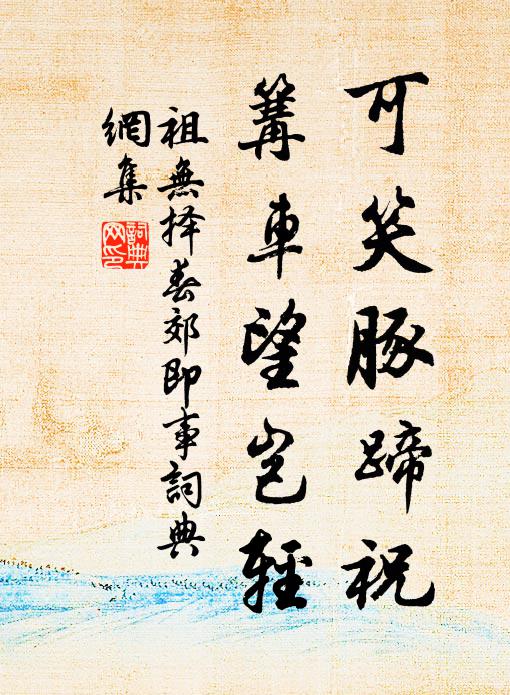 可笑豚蹄祝
篝車望岂輕
祖無择春郊即事詞典
網集
詞典
网印